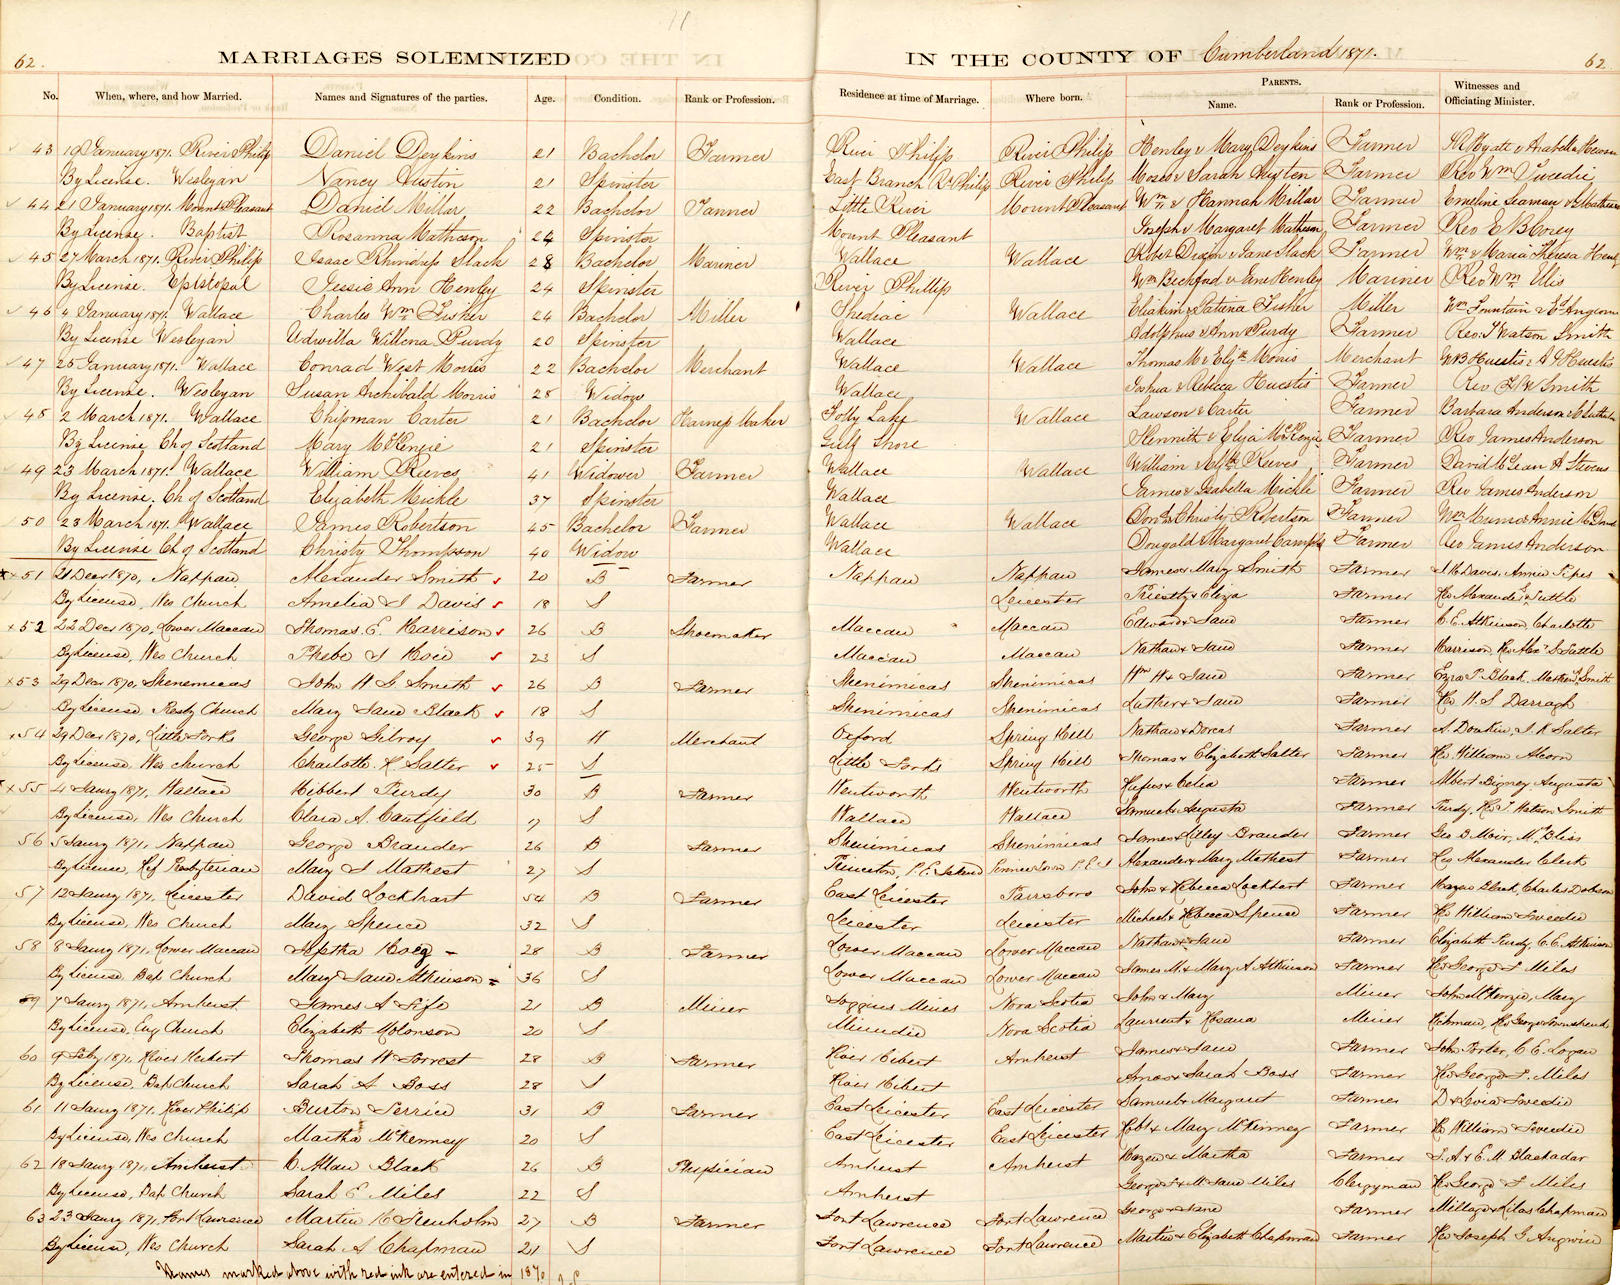 11
62. MARRIAGES SOLEMNIZED IN THE COUNTY OF Cumberland 1871. 62
No. When, where, and how Married. Names and Signatures of the parties. Age. Condition. Rank or Profession. Residence at time of Marriage. Where born. PARENTS. Name. Rank or Profession. Witnesses and Officiating Minister.
43 19 January 1871. River Philip Daniel Deykins 21 Bachelor Farmer River Philip River Philip Henley & Mary Deykins Farmer
By License. Wesleyan Nancy Austin 21 Spinster East Branch Rr Philip River Philip Moses & Sarah Farmer Rev Wm Tweedie
44 21 January 1871. Mount Pleasant Daniel Millar 22 Bachelor Farmer Little River Mount Pleasant Wm & Hannah Millar Farmer Emeline Seaman
By License. Baptist Rosanna Matheson 24 Spinster Mount Pleasant Joseph & Margaret Matheson Farmer Rev E B Corey
45 27 March 1871. River Philip Isaac Slack 28 Bachelor Mariner Wallace Wallace Robert Dixon & Jane Slack Farmer Wm & Maria Theresa
By License. Episcopal Jessie Ann Henley 24 Spinster River Phillip Wm Beckford & Jane Henley Mariner Rev Wm Ellis
46 4 January 1871. Wallace Charles Wm Fisher 24 Bachelor Miller Shediac Wallace Eliakim & Fisher Miller Wm Fountain
By License Wesleyan Udwilla Willena Purdy 20 Spinster Wallace Adolphus & Ann Purdy Farmer Rev. T Watson Smith
47 25 January 1871. Wallace Conrad West Morris 22 Bachelor Merchant Wallace Wallace Thomas M & Elizth Morris Merchant W B Huestis & A G Huestis
By License. Wesleyan Susan Archibald Morris 28 Widow Wallace Joshua & Rebecca Huestis Farmer Rev T W Smith
48 2 March 1871. Wallace Chipman Carter 21 Bachelor Harness Maker Folly Lake Wallace Lawson & Carter Farmer Barbara Anderson
By License, Ch of Scotland Mary McKenzie 21 Spinster Gulf Shore Kennith & Eliza McKenzie Farmer Rev James Anderson
49 23 March 1871. Wallace William Reeves 41 Widower Farmer Wallace Wallace William Reeves Farmer David McLean A Stevens
By License. Ch of Scotland Elizabeth Mickle 37 Spinster Wallace James & Isabella Mickle Farmer Rev James Anderson
50 23 March 1871. Wallace James Robertson 45 Bachelor Farmer Wallace Wallace Christy Robertson Farmer Wm Munro & Annie
By License Ch of Scotland Christy Thompson 40 Widow Wallace Dougald & Margaret Farmer Rev James Anderson
x 51 21 Decr 1870, Nappan Alexander Smith 20 B Farmer Nappan Nappan James & Mary Smith Farmer Davis, Annie Pipes
By License, Wes Church Amelia I Davis 18 S Leicester Priestly & Eliza Farmer Rev Alexander S Tuttle
x 52 22 Decr 1870, Lower Maccan Thomas. E. Harrison 26 B Shoemaker Maccan Maccan Edward & Jane Farmer C. E. Atkinson, Charlotte
By License, Wes Church Phebe J Hoeg 23 S Maccan Maccan Nathan & Jane Farmer Harrison, Rev Alexr S Tuttle
x 53 29 Decr 1870, Shenemicas John W G. Smith 26 B Farmer Shenimicas Shenimicas Wm H & Jane Farmer Ezra P. Black, Smith
By License, Presby Church Mary Jane Black 18 S Shenimicas Shenimicas Luther & Jane Farmer Rev W. S Darragh
x 54 29 Decr 1870, Little Forks George Gilroy 39 W Merchant Oxford Spring Hill Nathan & Dorcas Farmer A. Donkin, Salter
By License, Wes church Charlotte. R Salter 25 S Little Forks Spring Hill Thomas & Elizabeth Salter Farmer Rev William Alcorn
x 55 4 Janry 1871, Wallace Hibbert Purdy 30 B Farmer Wentworth Wentworth Rufus & Celia Farmer Albert Bigney Augusta
By License, Wes Church Clara A. Cantfield 17 S Wallace Wallace Samuel & Augusta Farmer Purdy, Rev T Watson Smith
56 5 Janry 1871, Nappan George Brander 26 B Farmer Shenimicas Shenimicas James & Brander Farmer Geo D Moir, Bliss
By License, Ref Presbyterian Mary I Mathest 27 S Princeton, P. E. Island Alexander & Mary Mathest Farmer Rev Alexander Clark
57 12 Janry 1871, Leicester David Lockhart 54 B Farmer East Leicester Parrsboro John & Rebecca Lockhart Farmer Black, Charles Dobson
By License, Wes Church Mary Spence 32 S Leicester Leicester Michael & Rebecca Spence Farmer Rev William Tweedie
58 8 Janry 1871, Lower Maccan Jeptha Hoeg 28 B Farmer Lower Maccan Lower Maccan Nathan & Jane Farmer Elizabeth Purdy, C. E. Atkinson
By License, Bap Church Mary Jane Atkinson 36 S Lower Maccan Lower Maccan James M. & Mary A Atkinson Farmer Rev George F Miles
59 7 Janry 1871, Amherst James A Fife 21 B Miner Joggins Mines Nova Scotia John & Mary Miner John McKenzie, Mary
By License, Eng Church Elizabeth Molonson 20 S Minudie Nova Scotia Laurent & Rosana Miner Hickman, Rev George Townshend
60 9 Feby 1871, River Hebert Thomas W Forrest 28 B Farmer River Hebert Amherst James & Jane Farmer John Porter, C. E. Logan
By License, Bap Church Sarah A Boss 28 S River Hebert Amos & Sarah Boss Farmer Rev George F. Miles
61 11 Janry 1871, River Philip Burton Perrin 31 B Farmer East Leicester East Leicester Samuel & Margaret Farmer D & Tweedie
By License, Wes Church Martha McKenney 20 S East Leicester East Leicester Robt & Mary McKinney Farmer Rev William Tweedie
62 18 Janry 1871, Amherst C Allan Black 26 B Physician Amherst Amherst Hazen & Martha Farmer J. A & E. M Blackadar
By License, Bap Church Sarah E Miles 22 S Amherst George F & M Jane Miles Clergyman Rev George F Miles
63 23 Janry 1871, Fort Lawrence Martin B Trenholm 27 B Farmer Fort Lawrence Fort Lawrence George & Jane Farmer Millage & Silas Chapman
By License, Wes Church Sarah A Chapman 21 S Fort Lawrence Fort Lawrence Martin & Elizabeth Chapman Farmer Rev Joseph G Angwin
Names marked above with red ink are entered in 1870